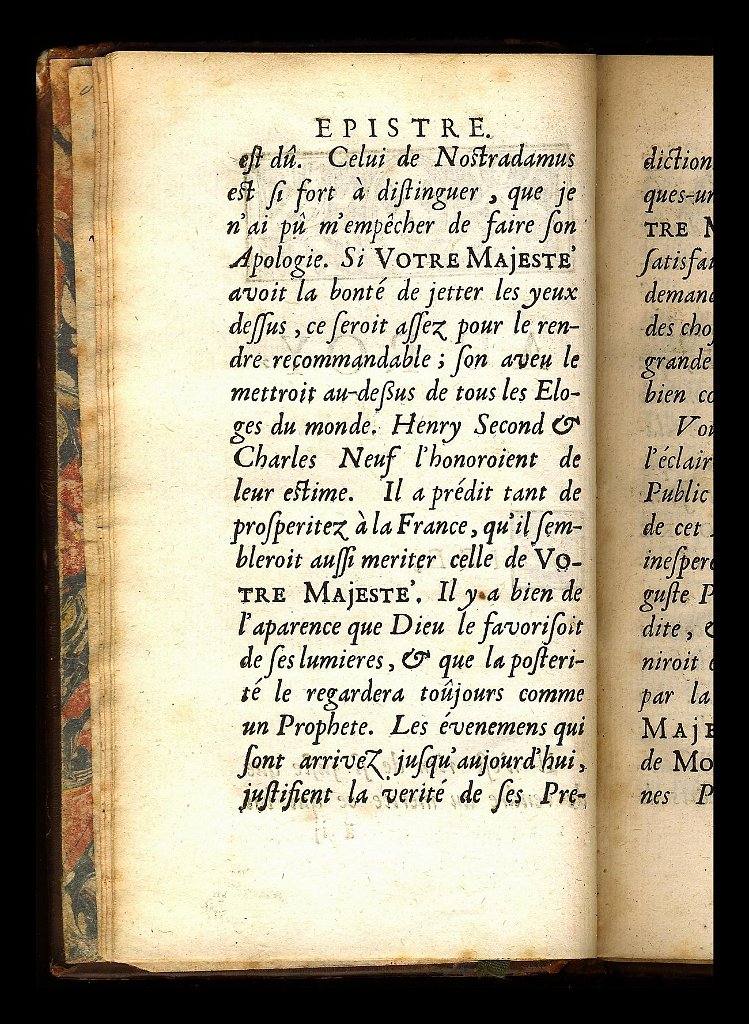 EPISTRE.
eſt dû. Celui de Noſtradamus
eſt ſi fort à diſtinguer, que je
n'ai pû m'empêcher de faire ſon
Apologie. Si VOTRE MAJESTE'
avoit la bonté de jetter les yeux
deſſus, ce ſeroit aſſez pour le ren-
dre recommandable; ſon aveu le
mettroit au-deſſus de tous les Elo-
ges du monde. Henry Second &
Charles Neuf l'honoroient de
leur eſtime. Il a prédit tant de
proſperitez à la France, qu'il ſem-
bleroit auſſi meriter celle de VO-
TRE MAJESTE'. Il y a bien de
l'aparence que Dieu le favoriſoit
de ſes lumieres, & que la poſteri-
té le regardera toûjours comme
un Prophete. Les évenemens qui
ſont arrivez juſqu'aujourd'hui,
juſtifient la verité de ſes Pre-
diction
ques-un
TRE M
ſatisfai
demand
des choſ
grande
bien co
Vou
l'éclair
Public
de cet
ineſperé
guſte P
dite, &
niroit
par la
MAJE
de Mo
nes P